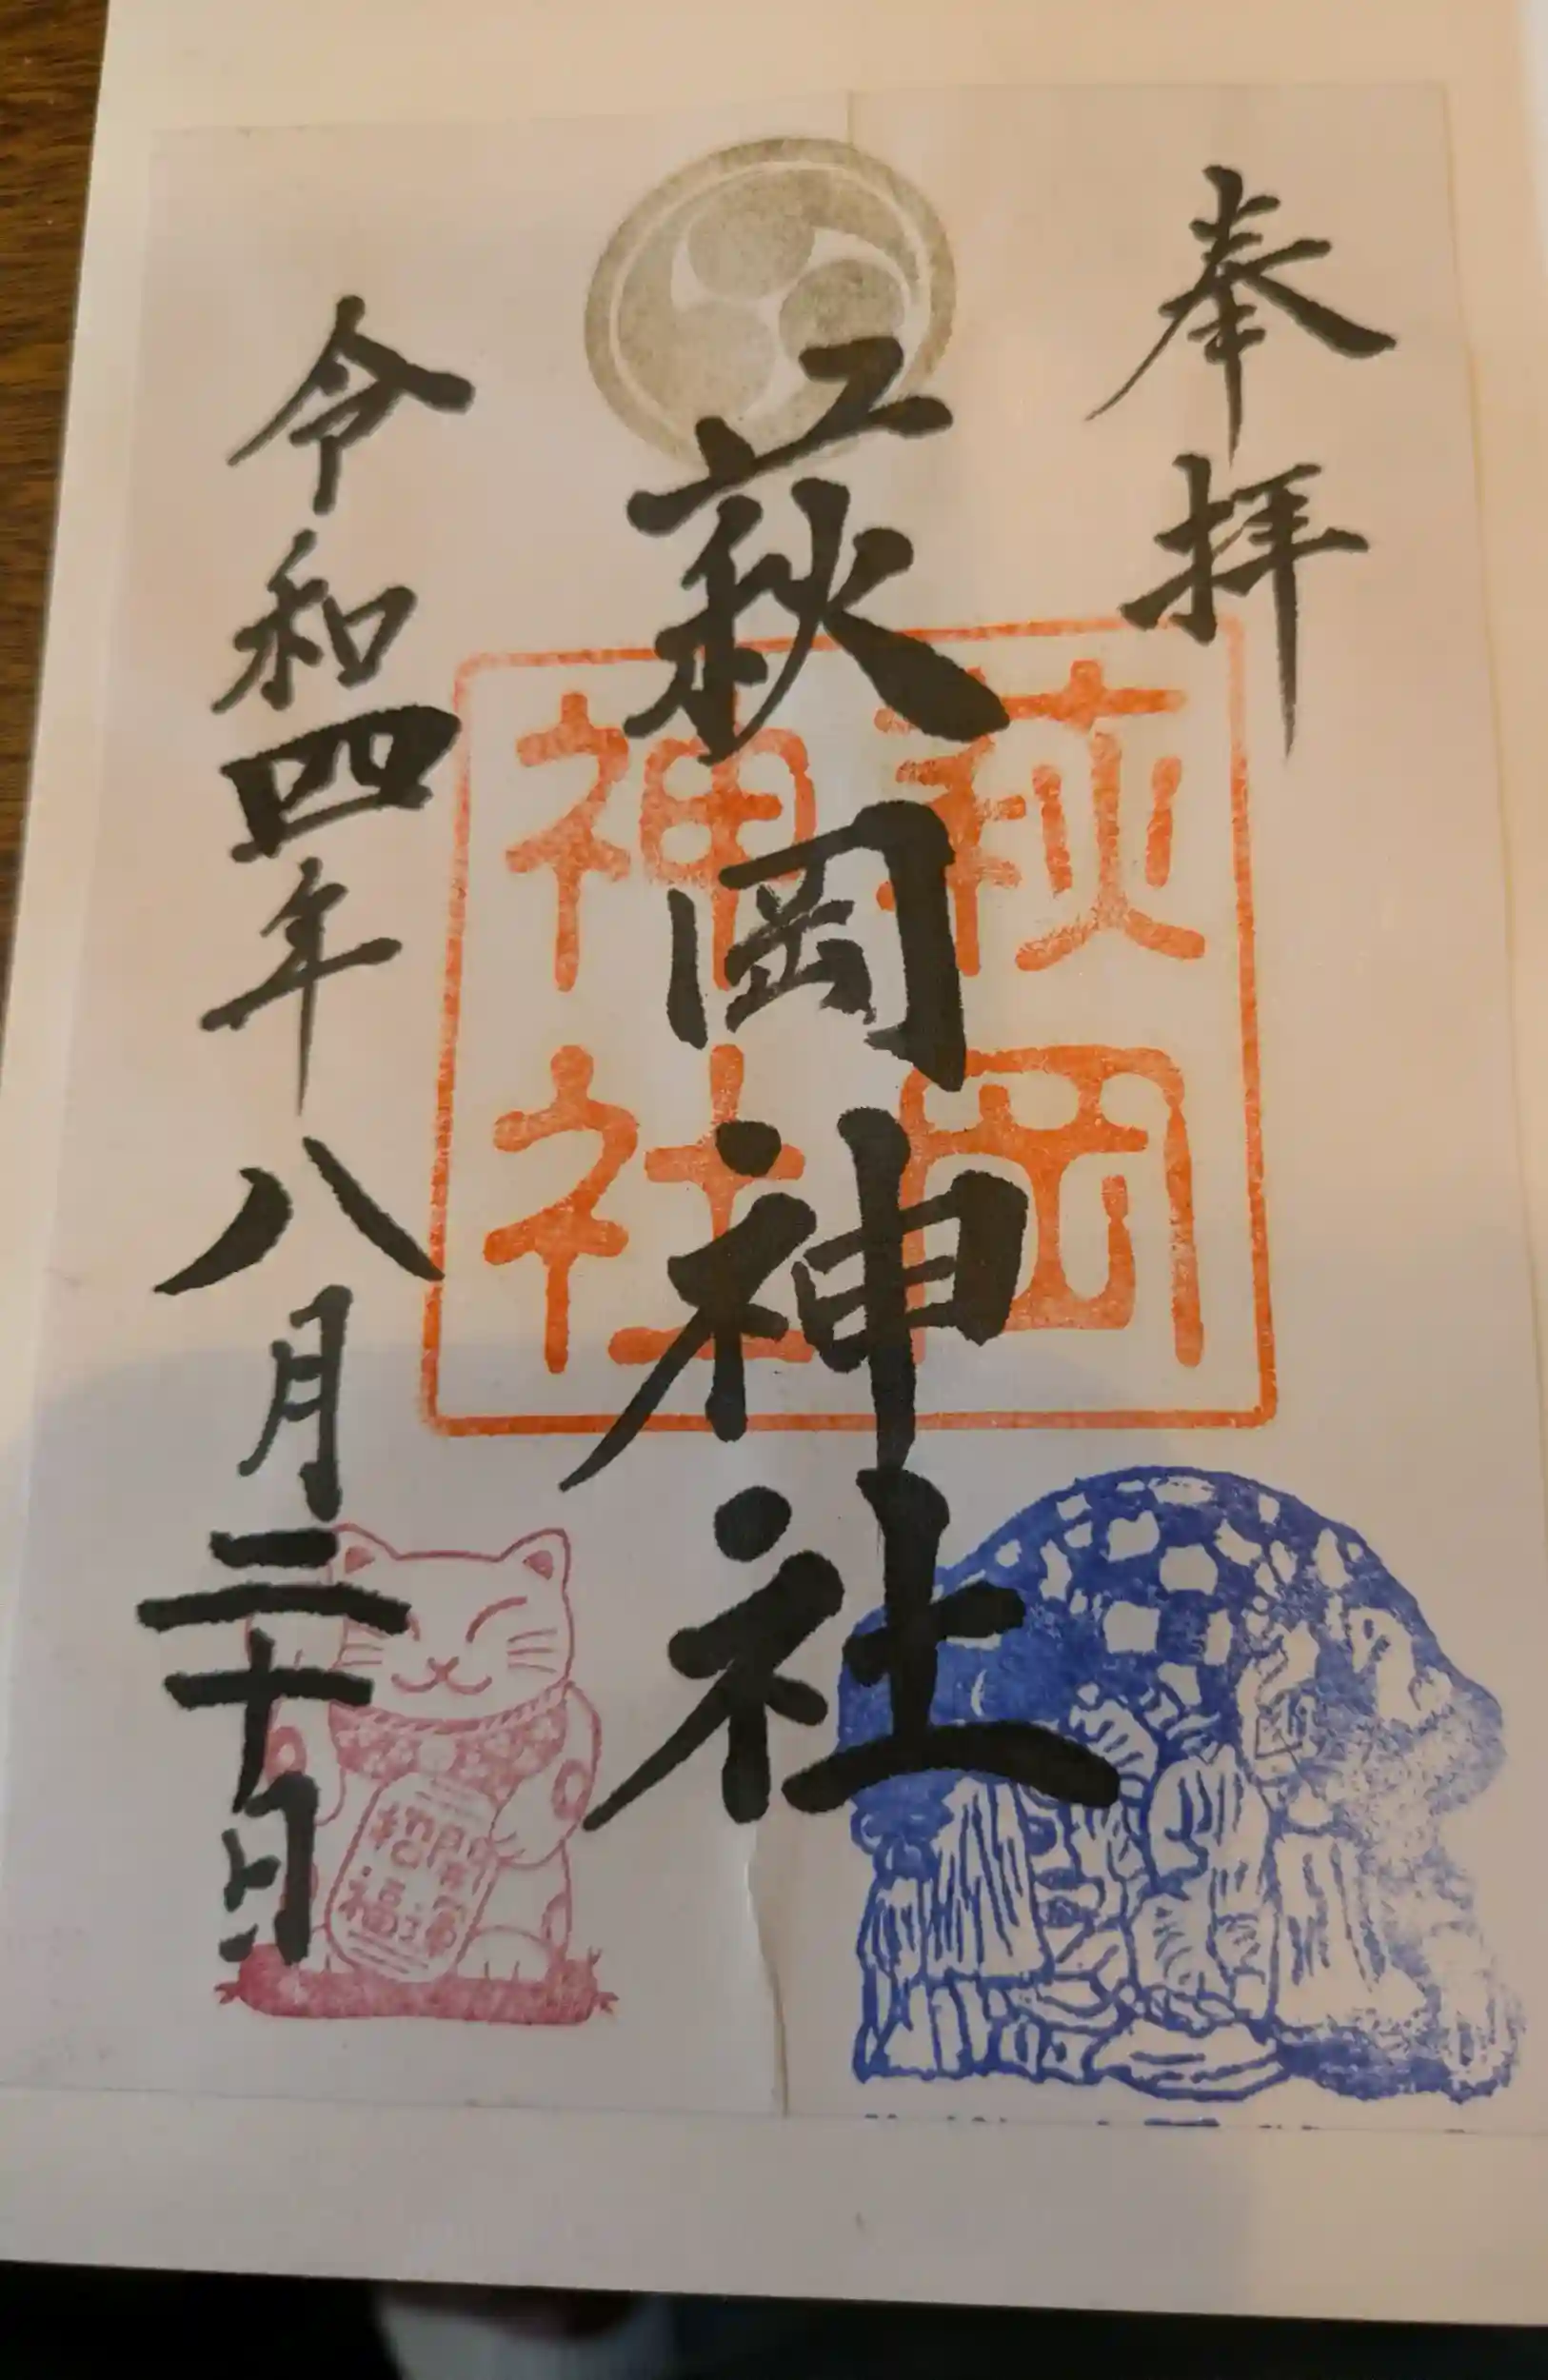 奉拝
萩岡神社
萩岡
神社
令和四年八月二十日
開運
招福